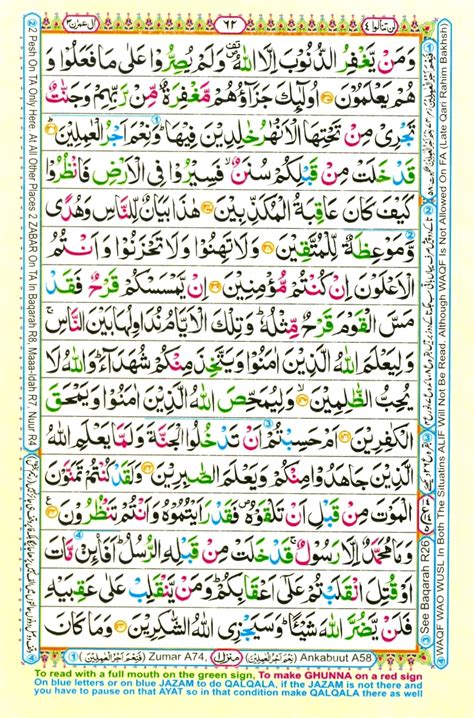 لن تنالوا ٤
٦٢
اٰل عمرٰن ٣
وَمَنْ يَّغْفِرُ الذُّنُوْبَ اِلَّا اللّٰهُ وَلَمْ يُصِرُّوْا عَلٰى مَا فَعَلُوْا وَ
هُمْ يَعْلَمُوْنَ اُولٰٓئِكَ جَزَآؤُهُمْ مَّغْفِرَةٌ مِّنْ رَّبِّهِمْ وَجَنّٰتٌ
تَجْرِيْ مِنْ تَحْتِهَا الْاَنْهٰرُ خٰلِدِيْنَ فِيْهَا وَنِعْمَ اَجْرُ الْعٰمِلِيْنَ
قَدْ خَلَتْ مِنْ قَبْلِكُمْ سُنَنٌ فَسِيْرُوْا فِي الْاَرْضِ فَانْظُرُوْا
كَيْفَ كَانَ عَاقِبَةُ الْمُكَذِّبِيْنَ هٰذَا بَيَانٌ لِّلنَّاسِ وَهُدًى
وَّمَوْعِظَةٌ لِّلْمُتَّقِيْنَ وَلَا تَهِنُوْا وَلَا تَحْزَنُوْا وَاَنْتُمُ
الْاَعْلَوْنَ اِنْ كُنْتُمْ مُّؤْمِنِيْنَ اِنْ يَّمْسَسْكُمْ قَرْحٌ فَقَدْ
مَسَّ الْقَوْمَ قَرْحٌ مِّثْلُهٗ وَتِلْكَ الْاَيَّامُ نُدَاوِلُهَا بَيْنَ النَّاسِ
وَلِيَعْلَمَ اللّٰهُ الَّذِيْنَ اٰمَنُوْا وَيَتَّخِذَ مِنْكُمْ شُهَدَآءَ وَاللّٰهُ لَا
يُحِبُّ الظّٰلِمِيْنَ وَلِيُمَحِّصَ اللّٰهُ الَّذِيْنَ اٰمَنُوْا وَيَمْحَقَ
الْكٰفِرِيْنَ اَمْ حَسِبْتُمْ اَنْ تَدْخُلُوا الْجَنَّةَ وَلَمَّا يَعْلَمِ اللّٰهُ
الَّذِيْنَ جَاهَدُوْا مِنْكُمْ وَيَعْلَمَ الصّٰبِرِيْنَ وَلَقَدْ كُنْتُمْ تَمَنَّوْنَ
الْمَوْتَ مِنْ قَبْلِ اَنْ تَلْقَوْهُ فَقَدْ رَاَيْتُمُوْهُ وَاَنْتُمْ تَنْظُرُوْنَ
وَمَا مُحَمَّدٌ اِلَّا رَسُوْلٌ قَدْ خَلَتْ مِنْ قَبْلِهِ الرُّسُلُ اَفَا۟ئِنْ مَّاتَ
اَوْ قُتِلَ انْقَلَبْتُمْ عَلٰٓى اَعْقَابِكُمْ وَمَنْ يَّنْقَلِبْ عَلٰى عَقِبَيْهِ
فَلَنْ يَّضُرَّ اللّٰهَ شَيْـًٔا وَسَيَجْزِي اللّٰهُ الشّٰكِرِيْنَ وَمَا كَانَ
② 2 Pesh On TA Only Here, At All Other Places 2 ZABAR On TA In Baqarah R8, Maaa-idah R7, Nuur R4
See Baqarah R26 ④ WAQF WAO WUSL In Both The Situatins ALIF Will Not Be Read. Although WAQF Is Not Allowed On FA (Late Qari Rahim Bakhsh)
① (فَنِعْمَ اَجْرُ الْعٰمِلِيْنَ) Zumar A74, منزل ١ (نِعْمَ اَجْرُ الْعٰمِلِيْنَ) Ankabuut A58
To read with a full mouth on the green sign, To make GHUNNA on a red sign
On blue letters or on blue JAZAM to do QALQALA, if the JAZAM is not there and
you have to pause on that AYAT so in that condition make QALQALA there as well